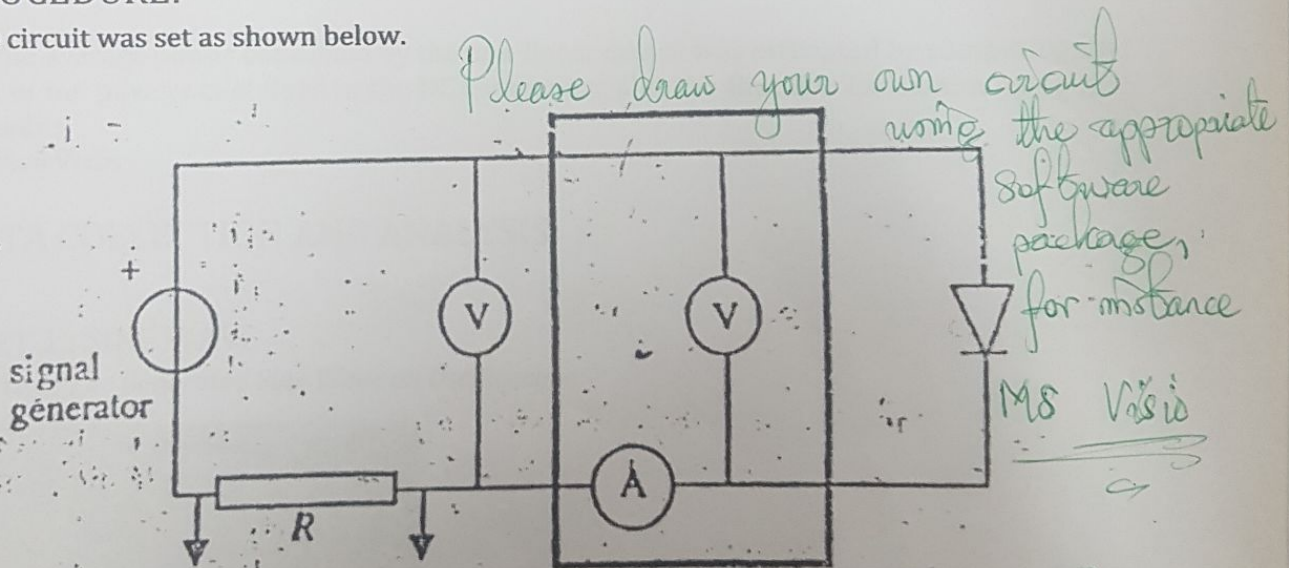 circuit was set as shown below.
Please draw your own circuit
using the appropriate
software
package,
for instance
MS Visio
+
signal
generator
V
V
A
R